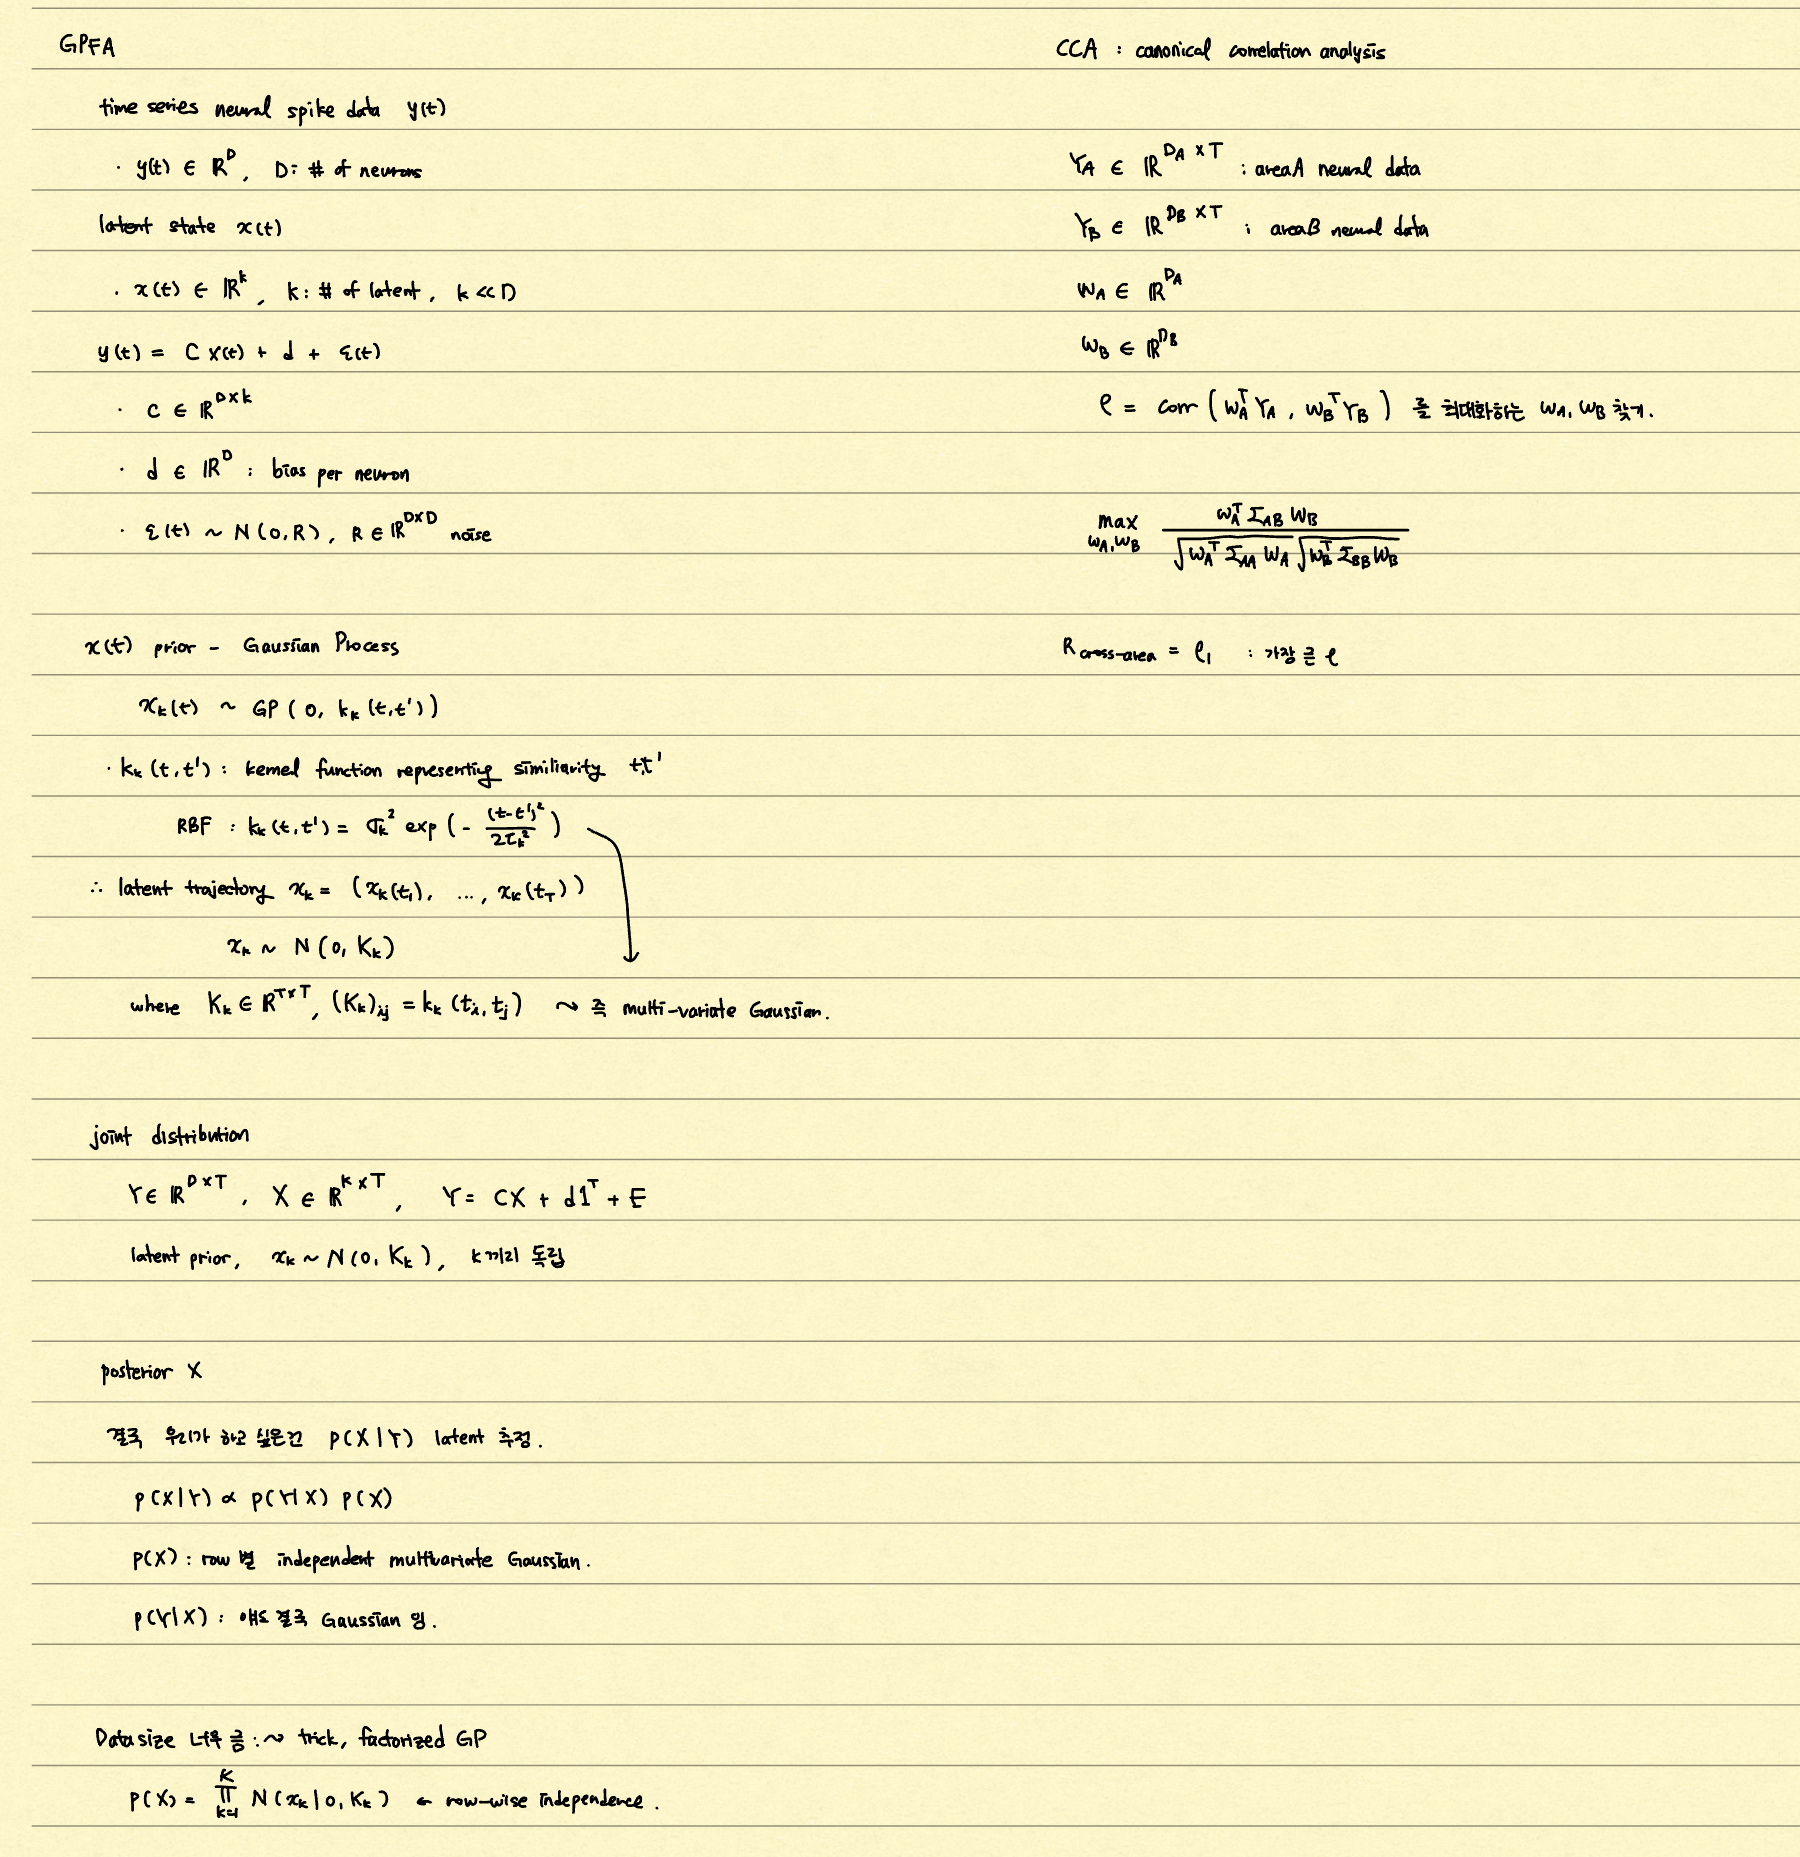 GPFA
time series neural spike data y(t)
· y(t) ∈ ℝ^D, D: # of neurons
latent state x(t)
· x(t) ∈ ℝ^k, k: # of latent, k << D
y(t) = C x(t) + d + ε(t)
· C ∈ ℝ^{D×k}
· d ∈ ℝ^D : bias per neuron
· ε(t) ~ N(0,R), R ∈ ℝ^{D×D} noise
x(t) prior - Gaussian Process
x_k(t) ~ GP(0, k_k(t,t'))
· k_k(t,t') : kernel function representing similiarity t,t'
RBF : k_k(t,t') = σ_k^2 exp(- (t-t')^2 / 2τ_k^2)
∴ latent trajectory x_k = (x_k(t_1), ..., x_k(t_T))
x_k ~ N(0, K_k)
where K_k ∈ ℝ^{T×T}, (K_k)_{ij} = k_k(t_i, t_j) ~> 즉 multi-variate Gaussian.
joint distribution
Y ∈ ℝ^{D×T}, X ∈ ℝ^{k×T}, Y = CX + d1^T + E
latent prior, x_k ~ N(0, K_k), k끼리 독립
posterior X
결국 우리가 하고 싶은건 p(X|Y) latent 추정.
p(X|Y) ∝ p(Y|X) p(X)
p(X) : row 별 independent multivariate Gaussian.
p(Y|X) : 얘도 결국 Gaussian 임.
Data size 너무 큼 : ~> trick, factorized GP
p(X) = ∏_{k=1}^{K} N(x_k | 0, K_k) ← row-wise independence.
CCA : canonical correlation analysis
Y_A ∈ ℝ^{D_A × T} : area A neural data
Y_B ∈ ℝ^{D_B × T} : area B neural data
w_A ∈ ℝ^{D_A}
w_B ∈ ℝ^{D_B}
ρ = corr(w_A^T Y_A, w_B^T Y_B) 를 최대화하는 w_A, w_B 찾기.
max_{w_A, w_B} w_A^T Σ_AB w_B / √(w_A^T Σ_AA w_A) √(w_B^T Σ_BB w_B)
R_cross-area = ρ_1 : 가장 큰 ρ